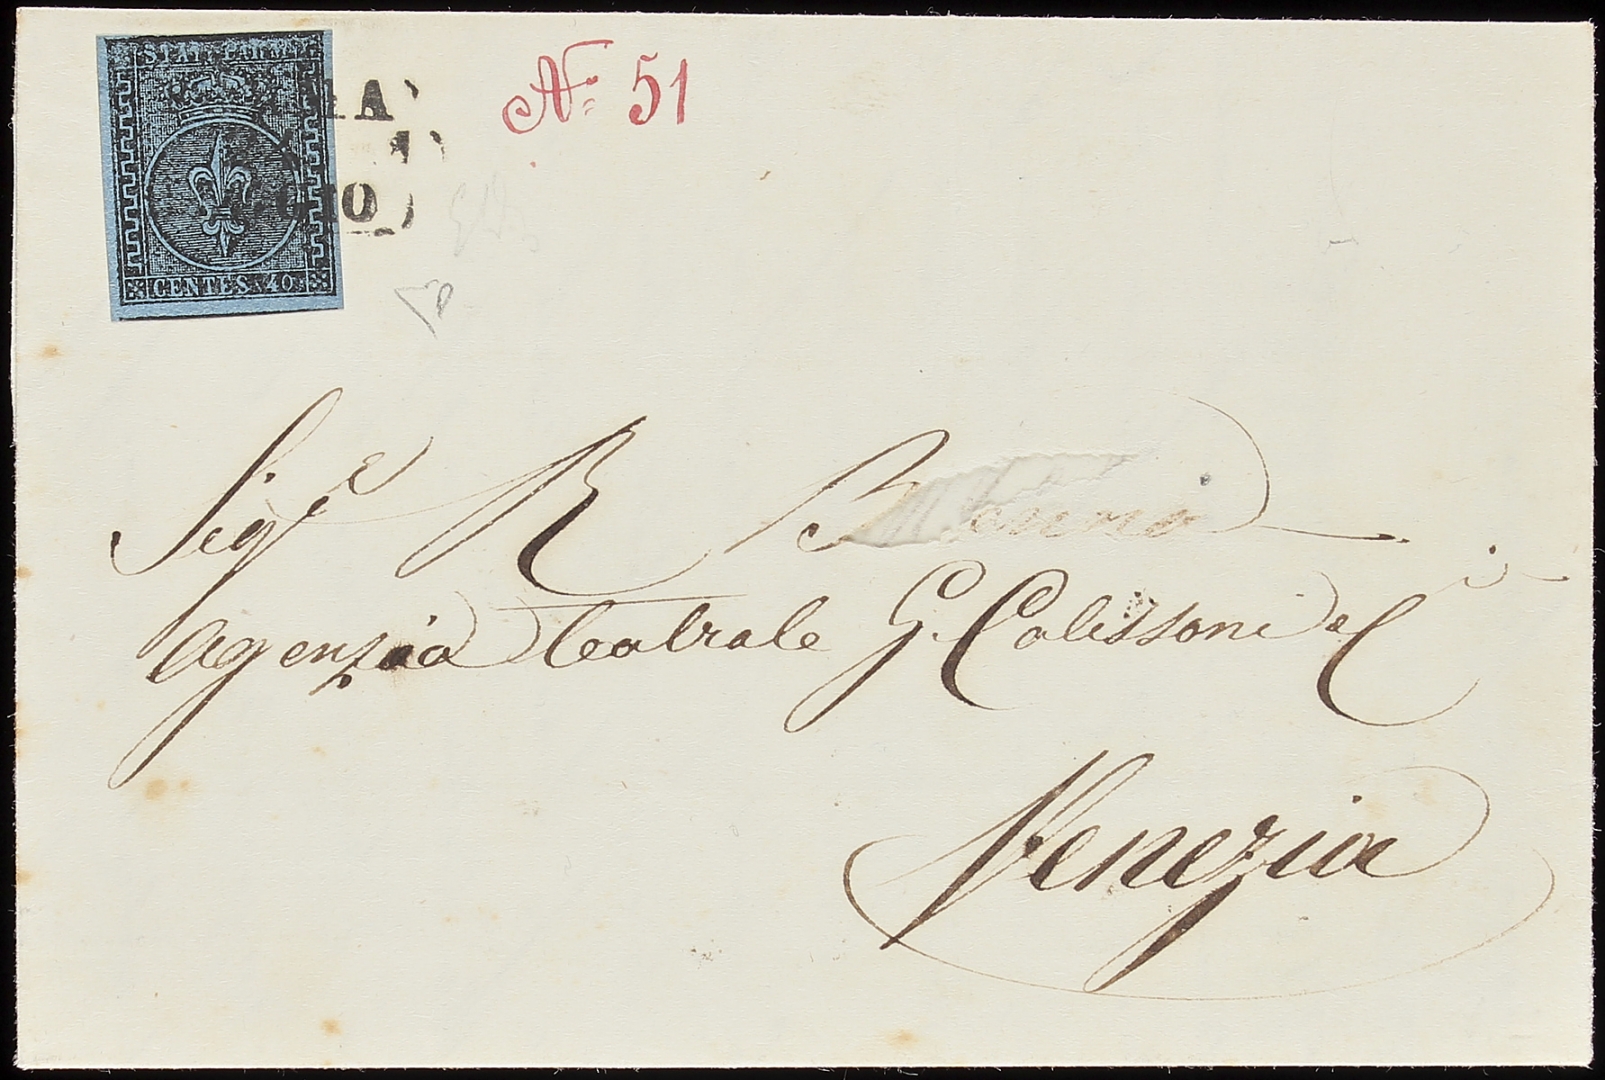 STATI PARM.
CENTES. 40
Nº 51
Sigr.e R
Agenzia Teatrale G. Calissoni e C
Venezia